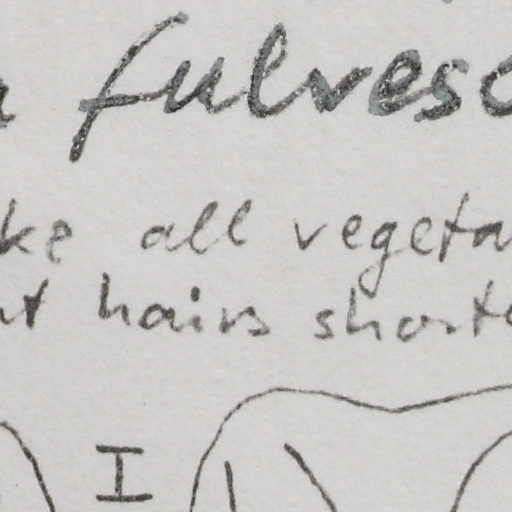 fulvesc
ke all vegeta
nt hairs shorte
I